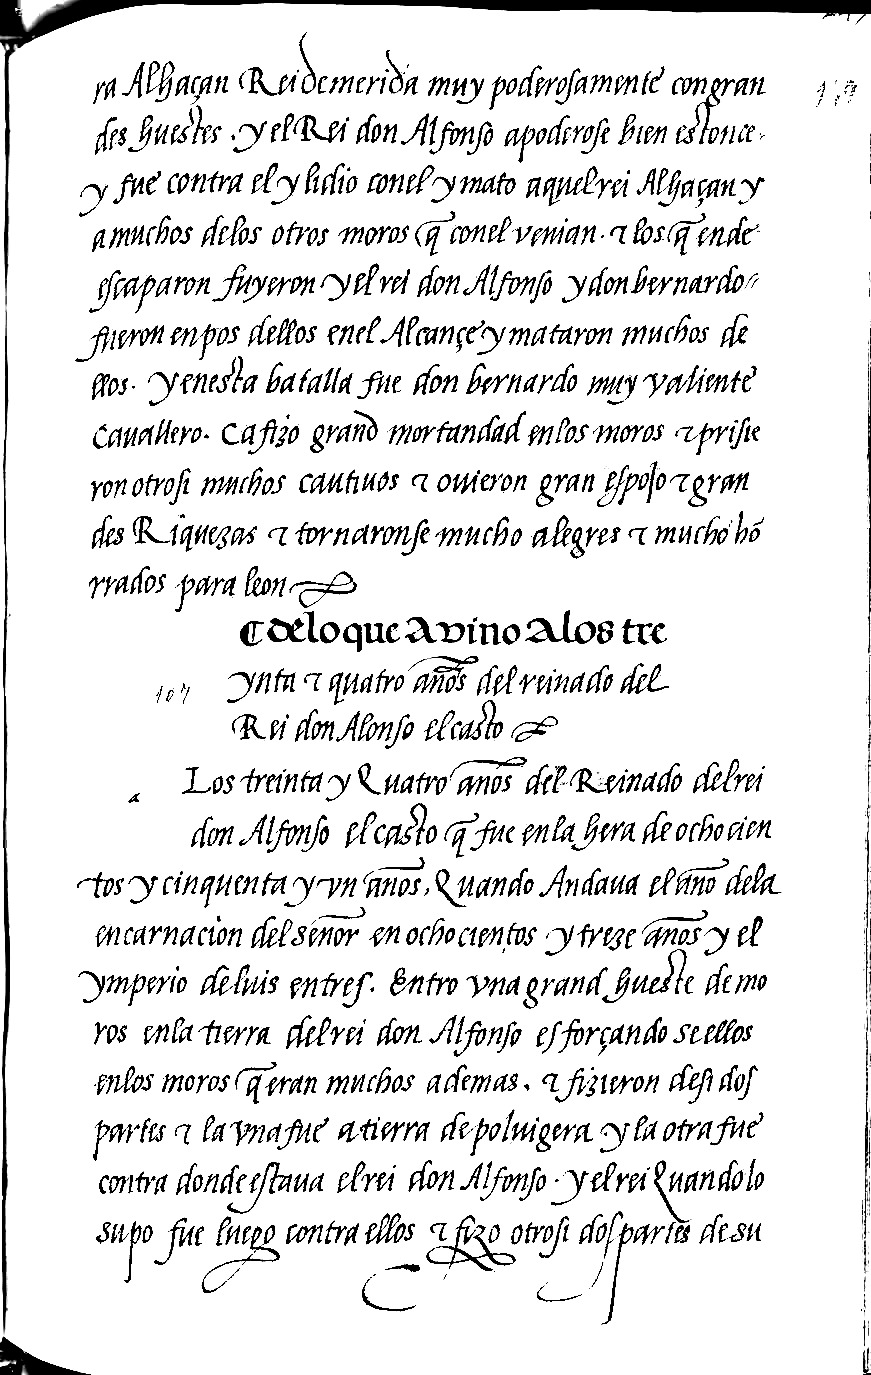 ra Alhaçan Rei de merida muy poderosamente con gran
des huestes . y el Rei don Alfonso apoderose bien estonce
y fue contra el y lidio conel y mato aquel rei Alhaçan y
a muchos delos otros moros q̃ conel venian . ⁊ los q̃ ende
escaparon fuyeron y el rei don Alfonso y don bernardo
fueron en pos dellos enel Alcançe y mataron muchos de
llos . y en esta batalla fue don bernardo muy valiente
cauallero . Ca fizo grand mortandad en los moros ⁊ prisie
ron otrosi muchos cautiuos ⁊ ouieron gran espojo ⁊ gran
des Riquezas ⁊ tornaronse mucho alegres ⁊ mucho hõ
rrados para leon
¶ de lo que Avino A los tre
107
ynta ⁊ quatro años del reinado del
Rei don Alonso el casto
Los treinta y Quatro años del Reinado del rei
don Alfonso el casto q̃ fue en la hera de ochocien
tos y cinquenta y vn años, Quando Andaua el año dela
encarnacion del señor en ochocientos y treze años y el
ymperio de luis en tres . Entro vna grand hueste de mo
ros en la tierra del rei don Alfonso esforçando se ellos
en los moros q̃ eran muchos ademas . ⁊ fizieron desi dos
partes ⁊ la vna fue a tierra de poluigera y la otra fue
contra donde estaua el rei don Alfonso . y el rei Quando lo
supo fue luego contra ellos ⁊ fizo otrosi dos partes de su